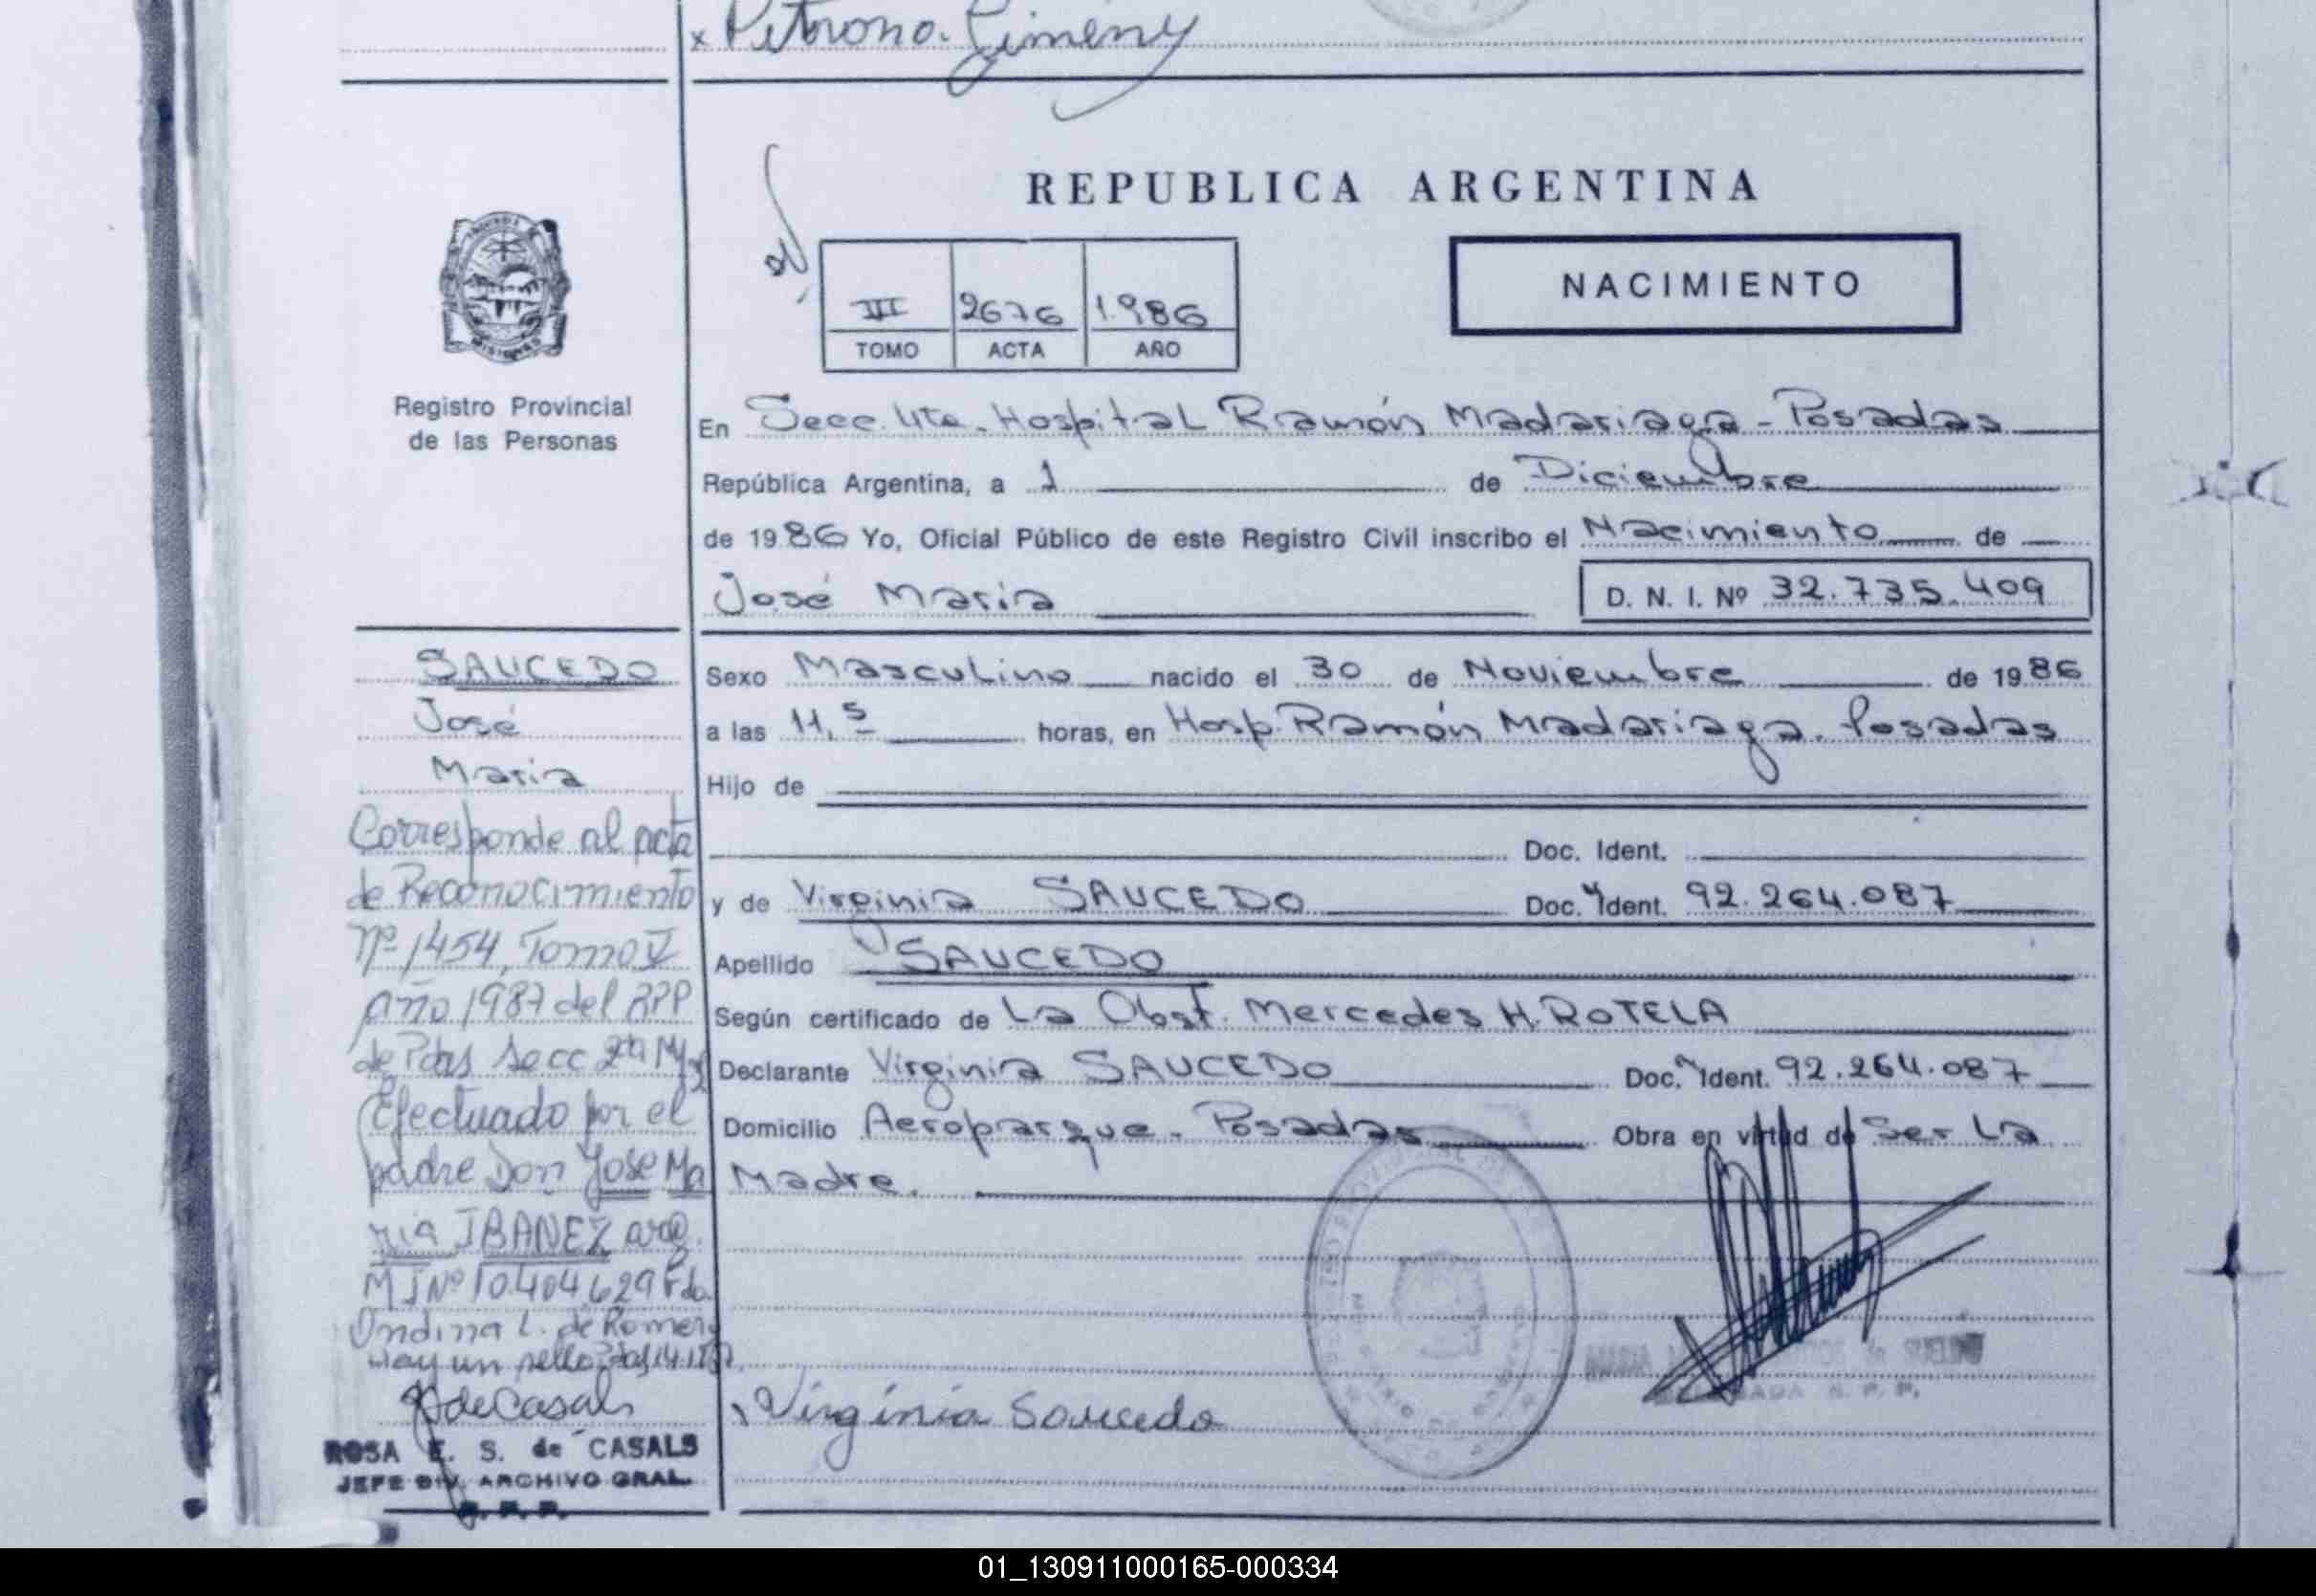 x Petrona Gimeny
REPUBLICA ARGENTINA
NACIMIENTO
III 2676 1.986
TOMO ACTA AÑO
Registro Provincial
de las Personas
En Secc. 4ta. Hospital Ramón Madariaga - Posadas
República Argentina, a 1 de Diciembre
de 1986 Yo, Oficial Público de este Registro Civil inscribo el Nacimiento de
José Maria D. N. I. Nº 32.735.409
SAUCEDO
José
Maria
Corresponde al acta
de Reconocimiento
Nº 1454, Tomo V
Año 1987 del RPP
de Pdas secc 2ta
Efectuado por el
padre Don José Ma
ria IBAÑEZ arg.
M I Nº 10.404.629 Fdo.
Undina L. de Romero
Hay un sello
deCasals
ROSA E. S. de CASALS
JEFE DIV. ARCHIVO GRAL.
R. P. P.
Sexo Masculino nacido el 30 de Noviembre de 1986
a las 11,5 horas, en Hosp. Ramón Madariaga. Posadas
Hijo de
Doc. Ident.
y de Virginia SAUCEDO Doc. Ident. 92.264.087
Apellido SAUCEDO
Según certificado de La Obst. Mercedes H. ROTELA
Declarante Virginia SAUCEDO Doc. Ident. 92.264.087
Domicilio Aeroparque - Posadas Obra en virtud de Ser La
Madre.
Virginia Saucedo
01_130911000165-000334